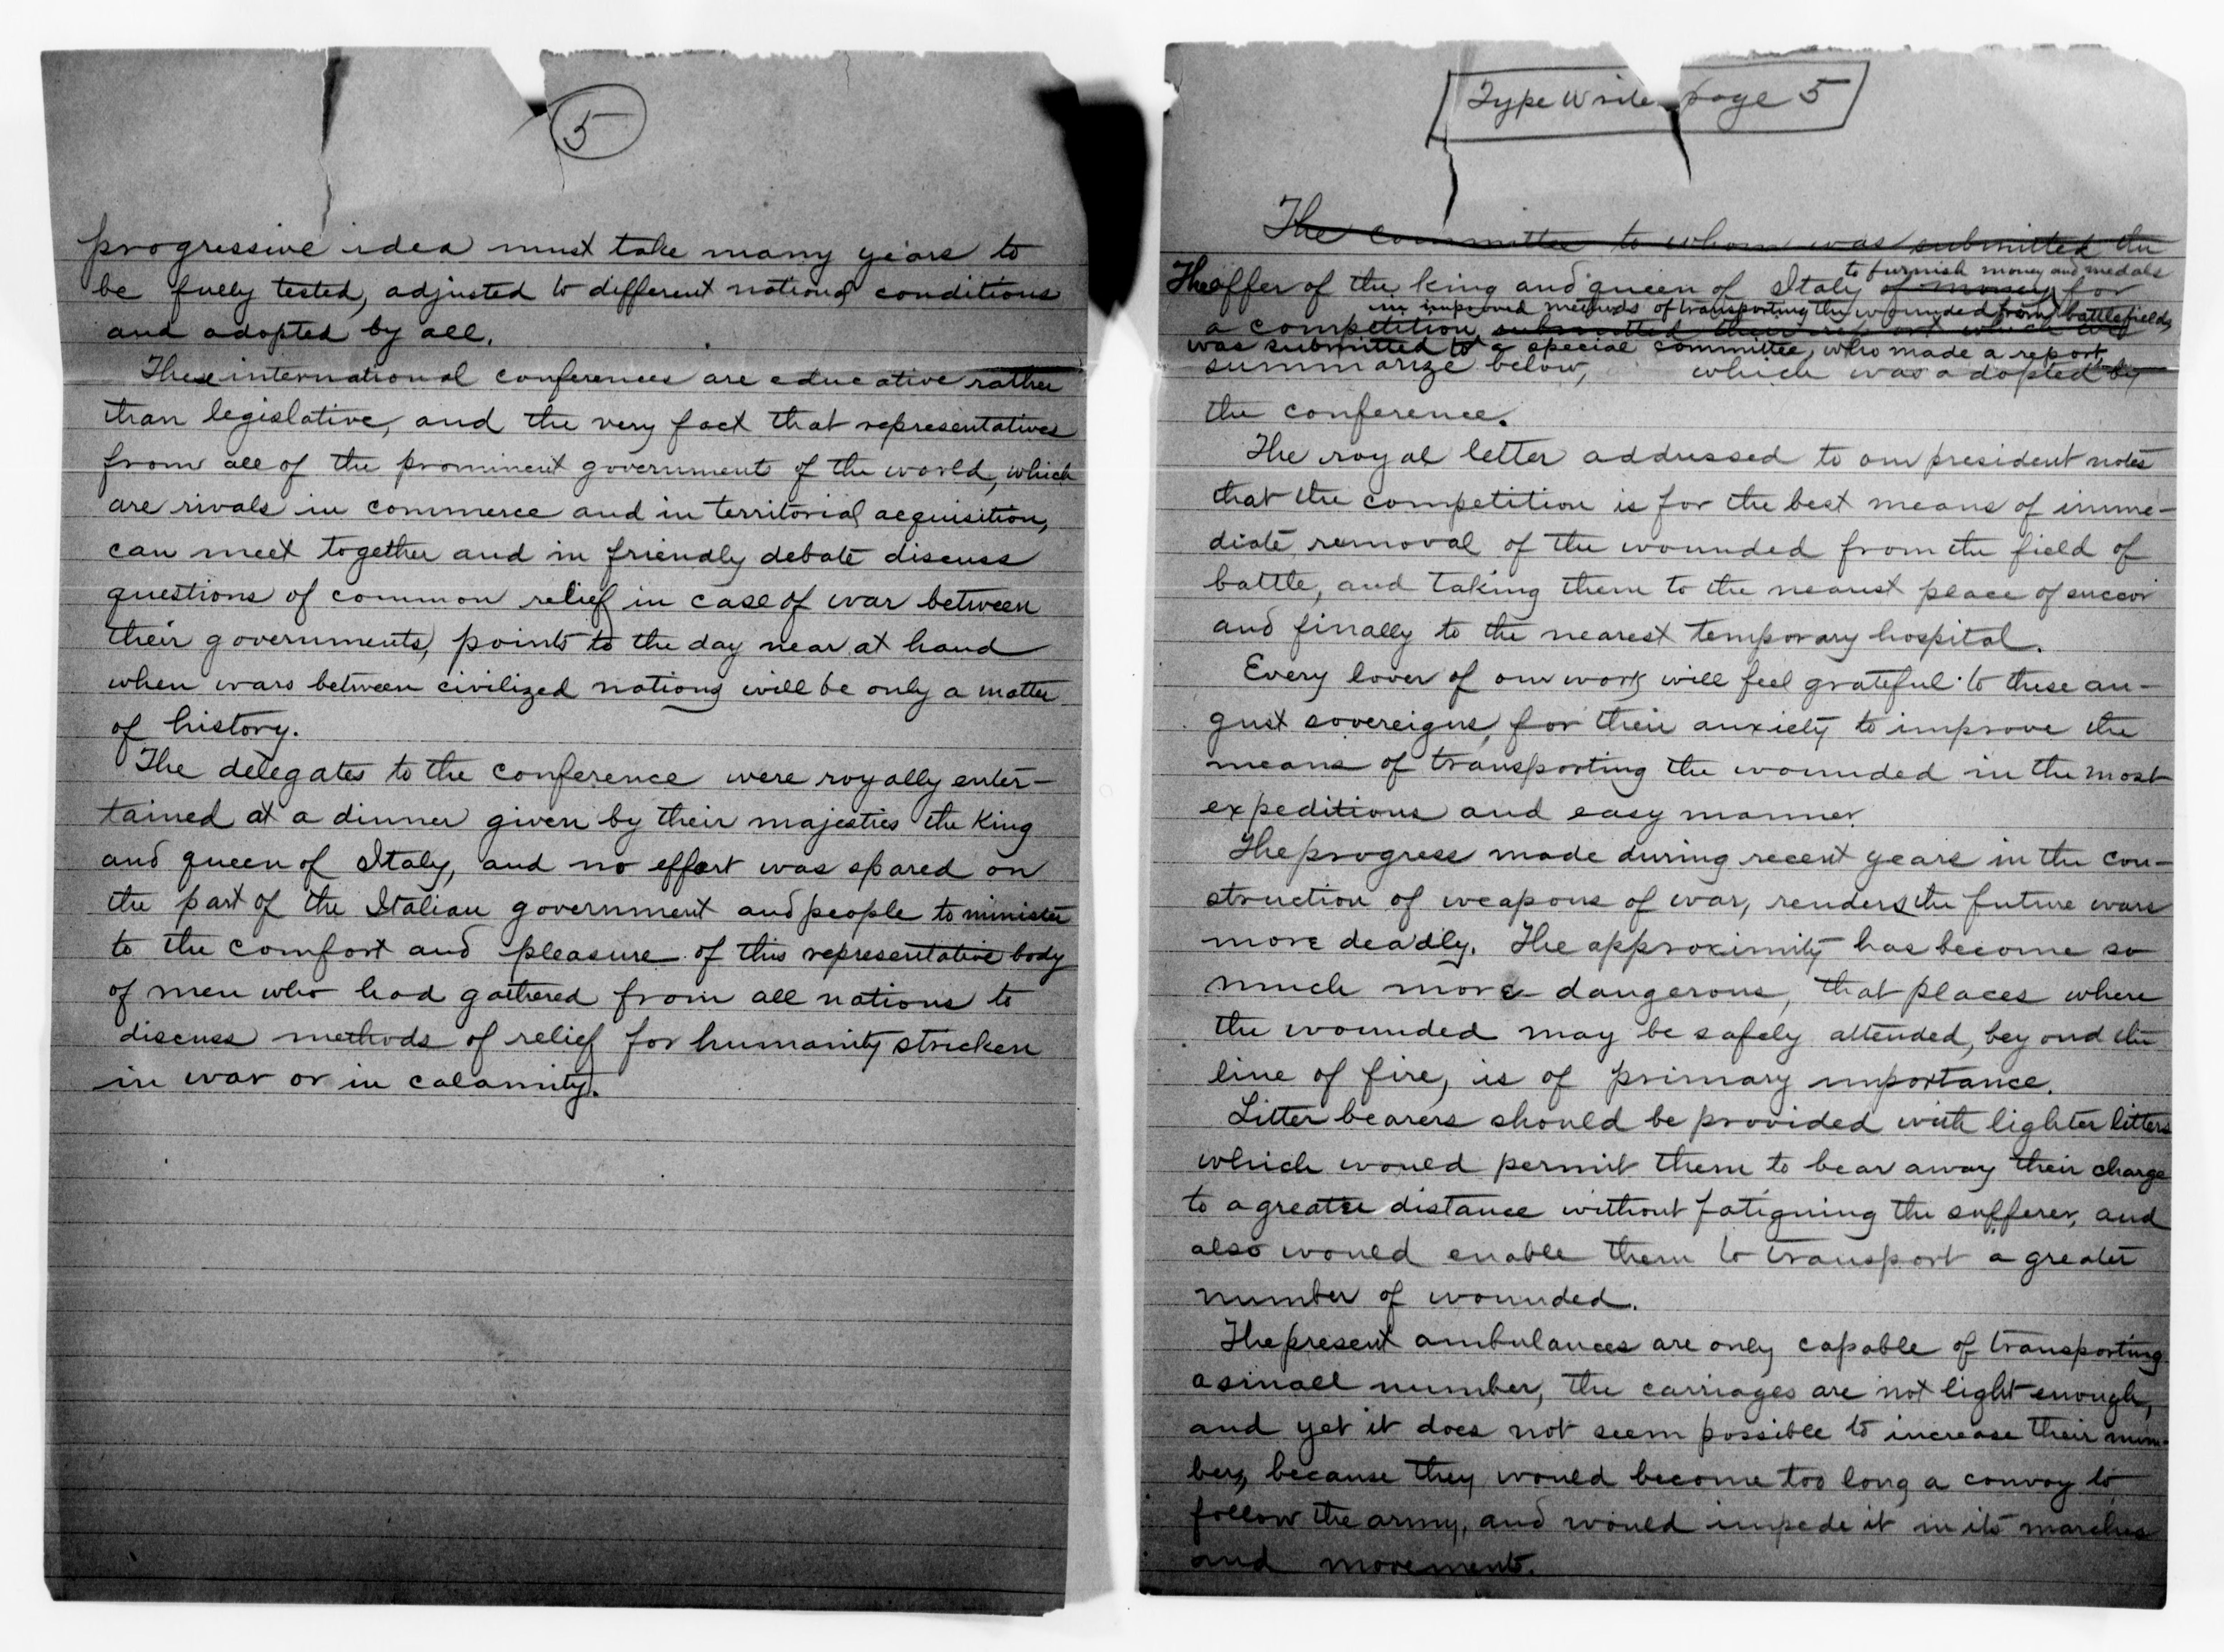 5
progressive idea must take many years to
be fully tested, adjusted to different national conditions
and adopted by all.
These international conferences are educative rather
than legislative, and the very fact that representatives
from all of the prominent governments of the world, which
are rivals in commerce and in territorial acquisition,
can meet together and in friendly debate discuss
questions of common relief in case of war between
their governments, points to the day near at hand
when wars between civilized nations will be only a matter
of history.
The delegates to the conference were royally enter-
tained at a dinner given by their majesties the King
and queen of Italy, and no effort was spared on
the part of the Italian government and people to minister
to the comfort and pleasure of this representative body
of men who had gathered from all nations to
discuss methods of relief for humanity stricken
in war or in calamity.
Type Write page 5
The committee to whom was submitted the
to furnish money and medals
The offer of the king and queen of Italy of money for
in improved methods of transporting the wounded from battlefields,
a competition submitted their report which we
was submitted to a special committee, who made a report
summarize below, which was adopted by
the conference.
The royal letter addressed to our president notes
that the competition is for the best means of imme-
diate removal of the wounded from the field of
battle, and taking them to the nearest place of succor
and finally to the nearest temporary hospital.
Every lover of our work will feel grateful to these au-
gust sovereigns, for their anxiety to improve the
means of transporting the wounded in the most
expeditious and easy manner.
The progress made during recent years in the con-
struction of weapons of war, renders the future wars
more deadly. The approximity has become so
much more dangerous, that places where
the wounded may be safely attended, beyond the
line of fire, is of primary importance.
Litter bearers should be provided with lighter litters
which would permit them to bear away their charge
to a greater distance without fatiguing the sufferer, and
also would enable them to transport a greater
number of wounded.
The present ambulances are only capable of transporting
a small number, the carriages are not light enough,
and yet it does not seem possible to increase their num-
bers, because they would become too long a convoy to
follow the army, and would impede it in its marches
and movements.